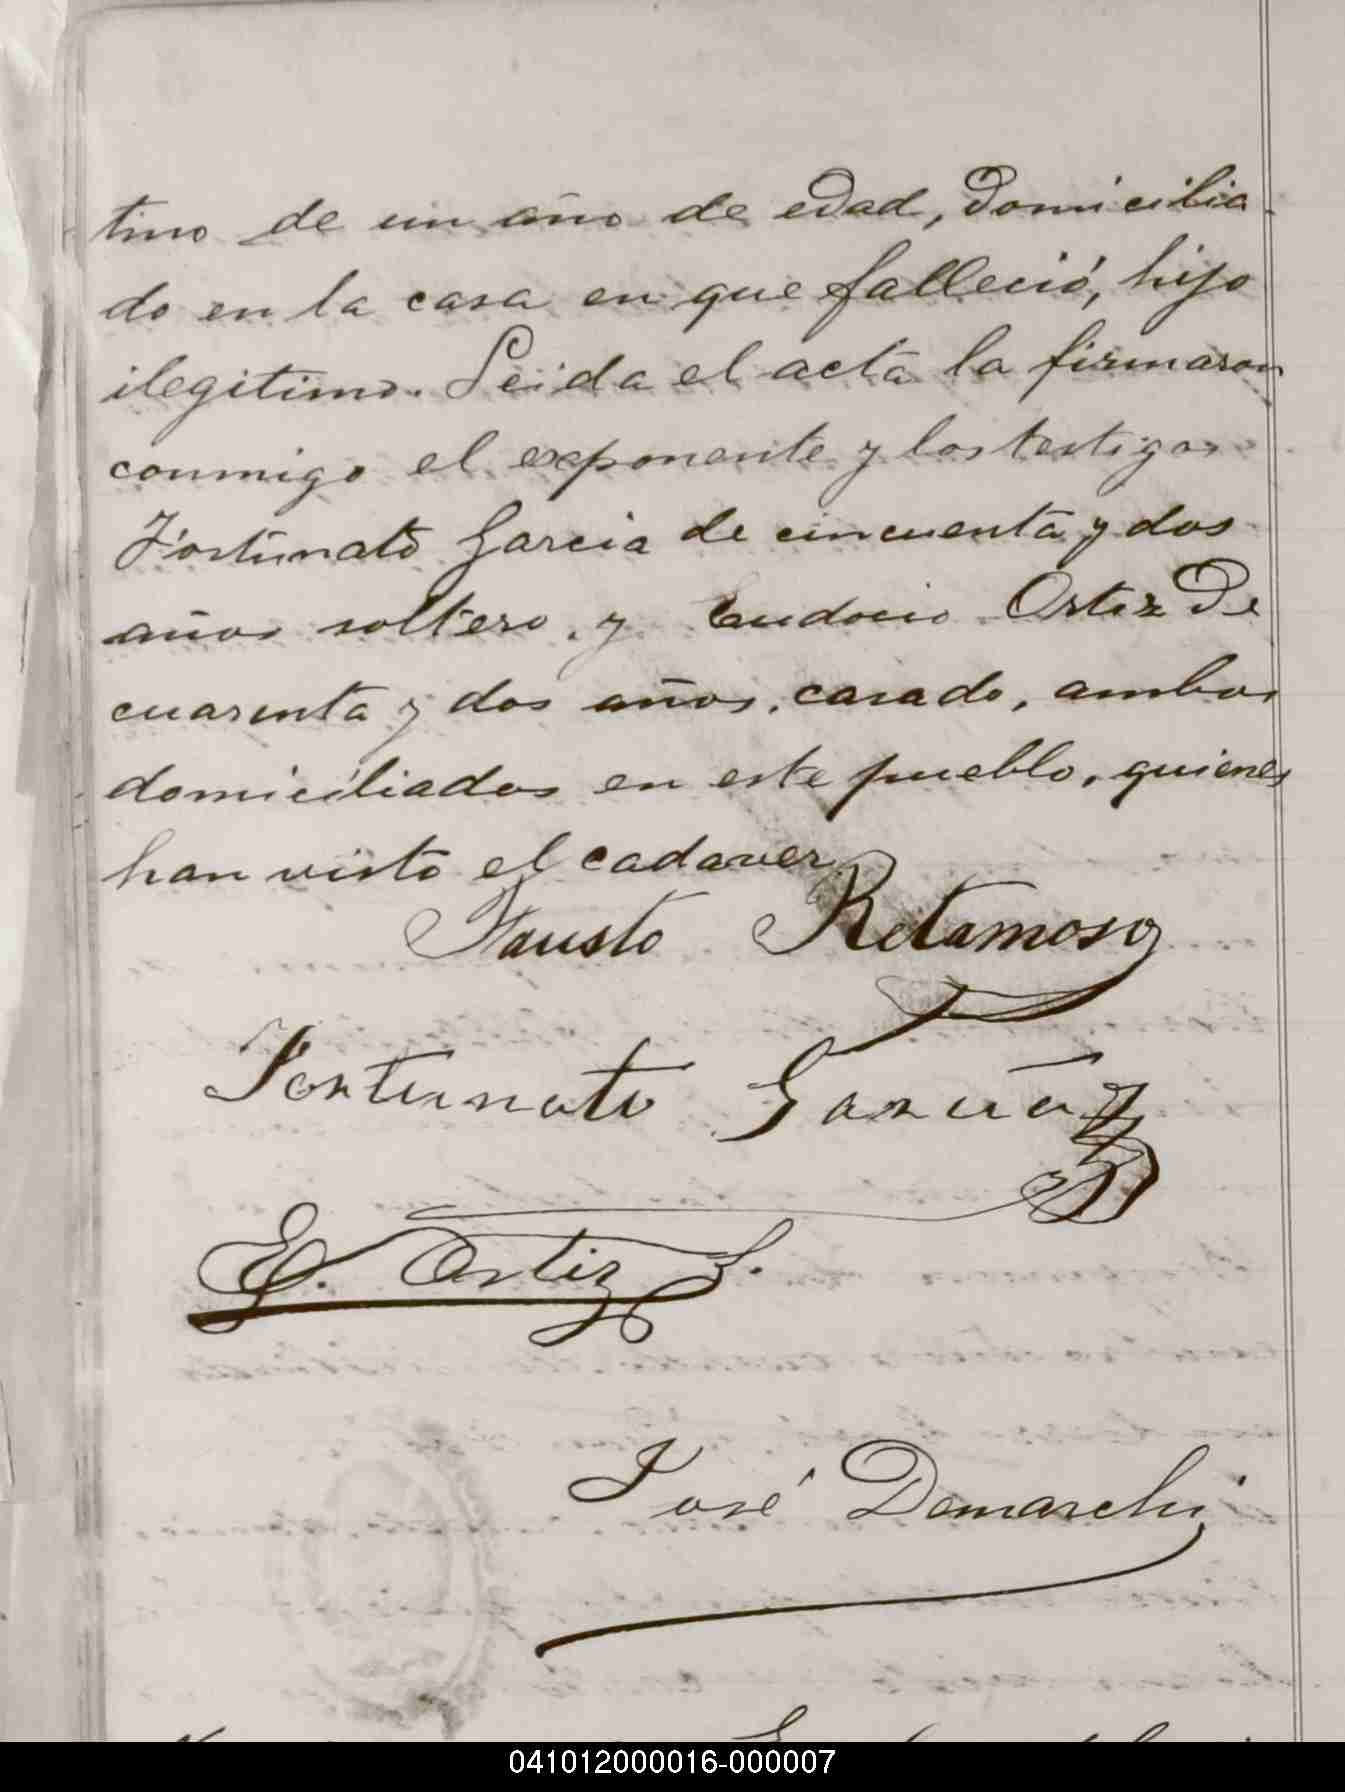 tino de un año de edad, domicilia
do en la casa en que falleció, hijo
ilegitimo. Leida el acta la firmaron
conmigo el exponente y los testigos
Fortunato Garcia de cincuenta y dos
años soltero, y Eudocio Ortiz de
cuarenta y dos años, casado, ambos
domiciliados en este pueblo, quienes
han visto el cadaver
Fausto Retamoso
Fortunato Garcia
E. Ortiz S.
José Demarchi
041012000016-000007